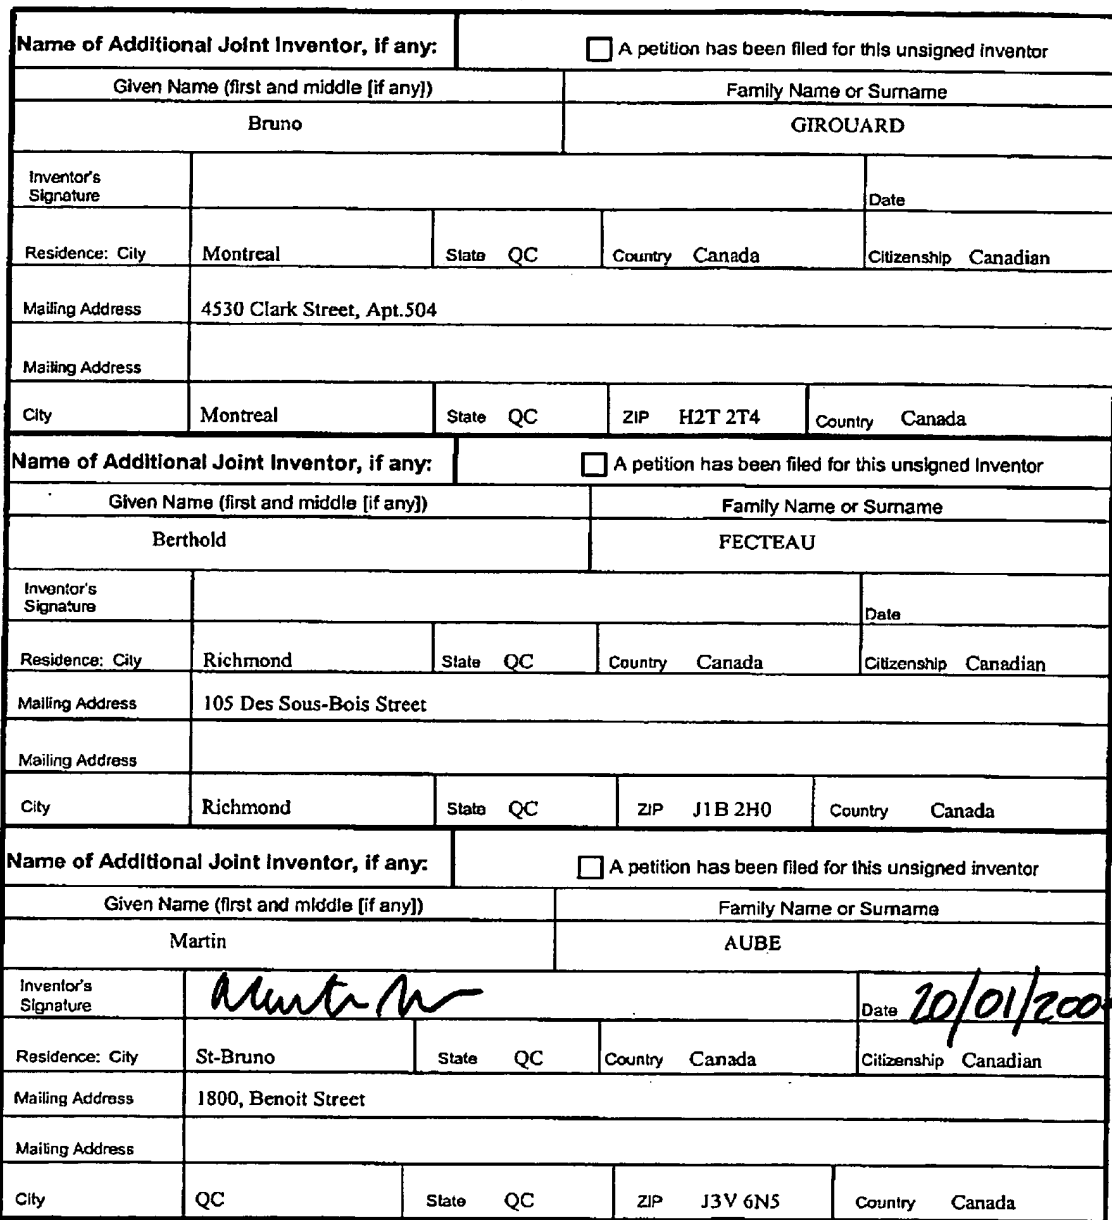 Name of Additional Joint Inventor, if any: A petition has been filed for this unsigned inventor
Given Name (first and middle [if any]) Family Name or Surname
Bruno GIROUARD
Inventor's
Signature Date
Residence: City Montreal State QC Country Canada Citizenship Canadian
Mailing Address 4530 Clark Street, Apt.504
Mailing Address
City Montreal State QC ZIP H2T 2T4 Country Canada
Name of Additional Joint Inventor, if any: A petition has been filed for this unsigned Inventor
Given Name (first and middle [if any]) Family Name or Surname
Berthold FECTEAU
Inventor's
Signature Date
Residence: City Richmond State QC Country Canada Citizenship Canadian
Mailing Address 105 Des Sous-Bois Street
Mailing Address
City Richmond State QC ZIP J1B 2H0 Country Canada
Name of Additional Joint Inventor, if any: A petition has been filed for this unsigned inventor
Given Name (first and middle [if any]) Family Name or Surname
Martin AUBE
Inventor's
Signature Date 20/01/200
Residence: City St-Bruno State QC Country Canada Citizenship Canadian
Mailing Address 1800, Benoit Street
Mailing Address
City QC State QC ZIP J3V 6N5 Country Canada